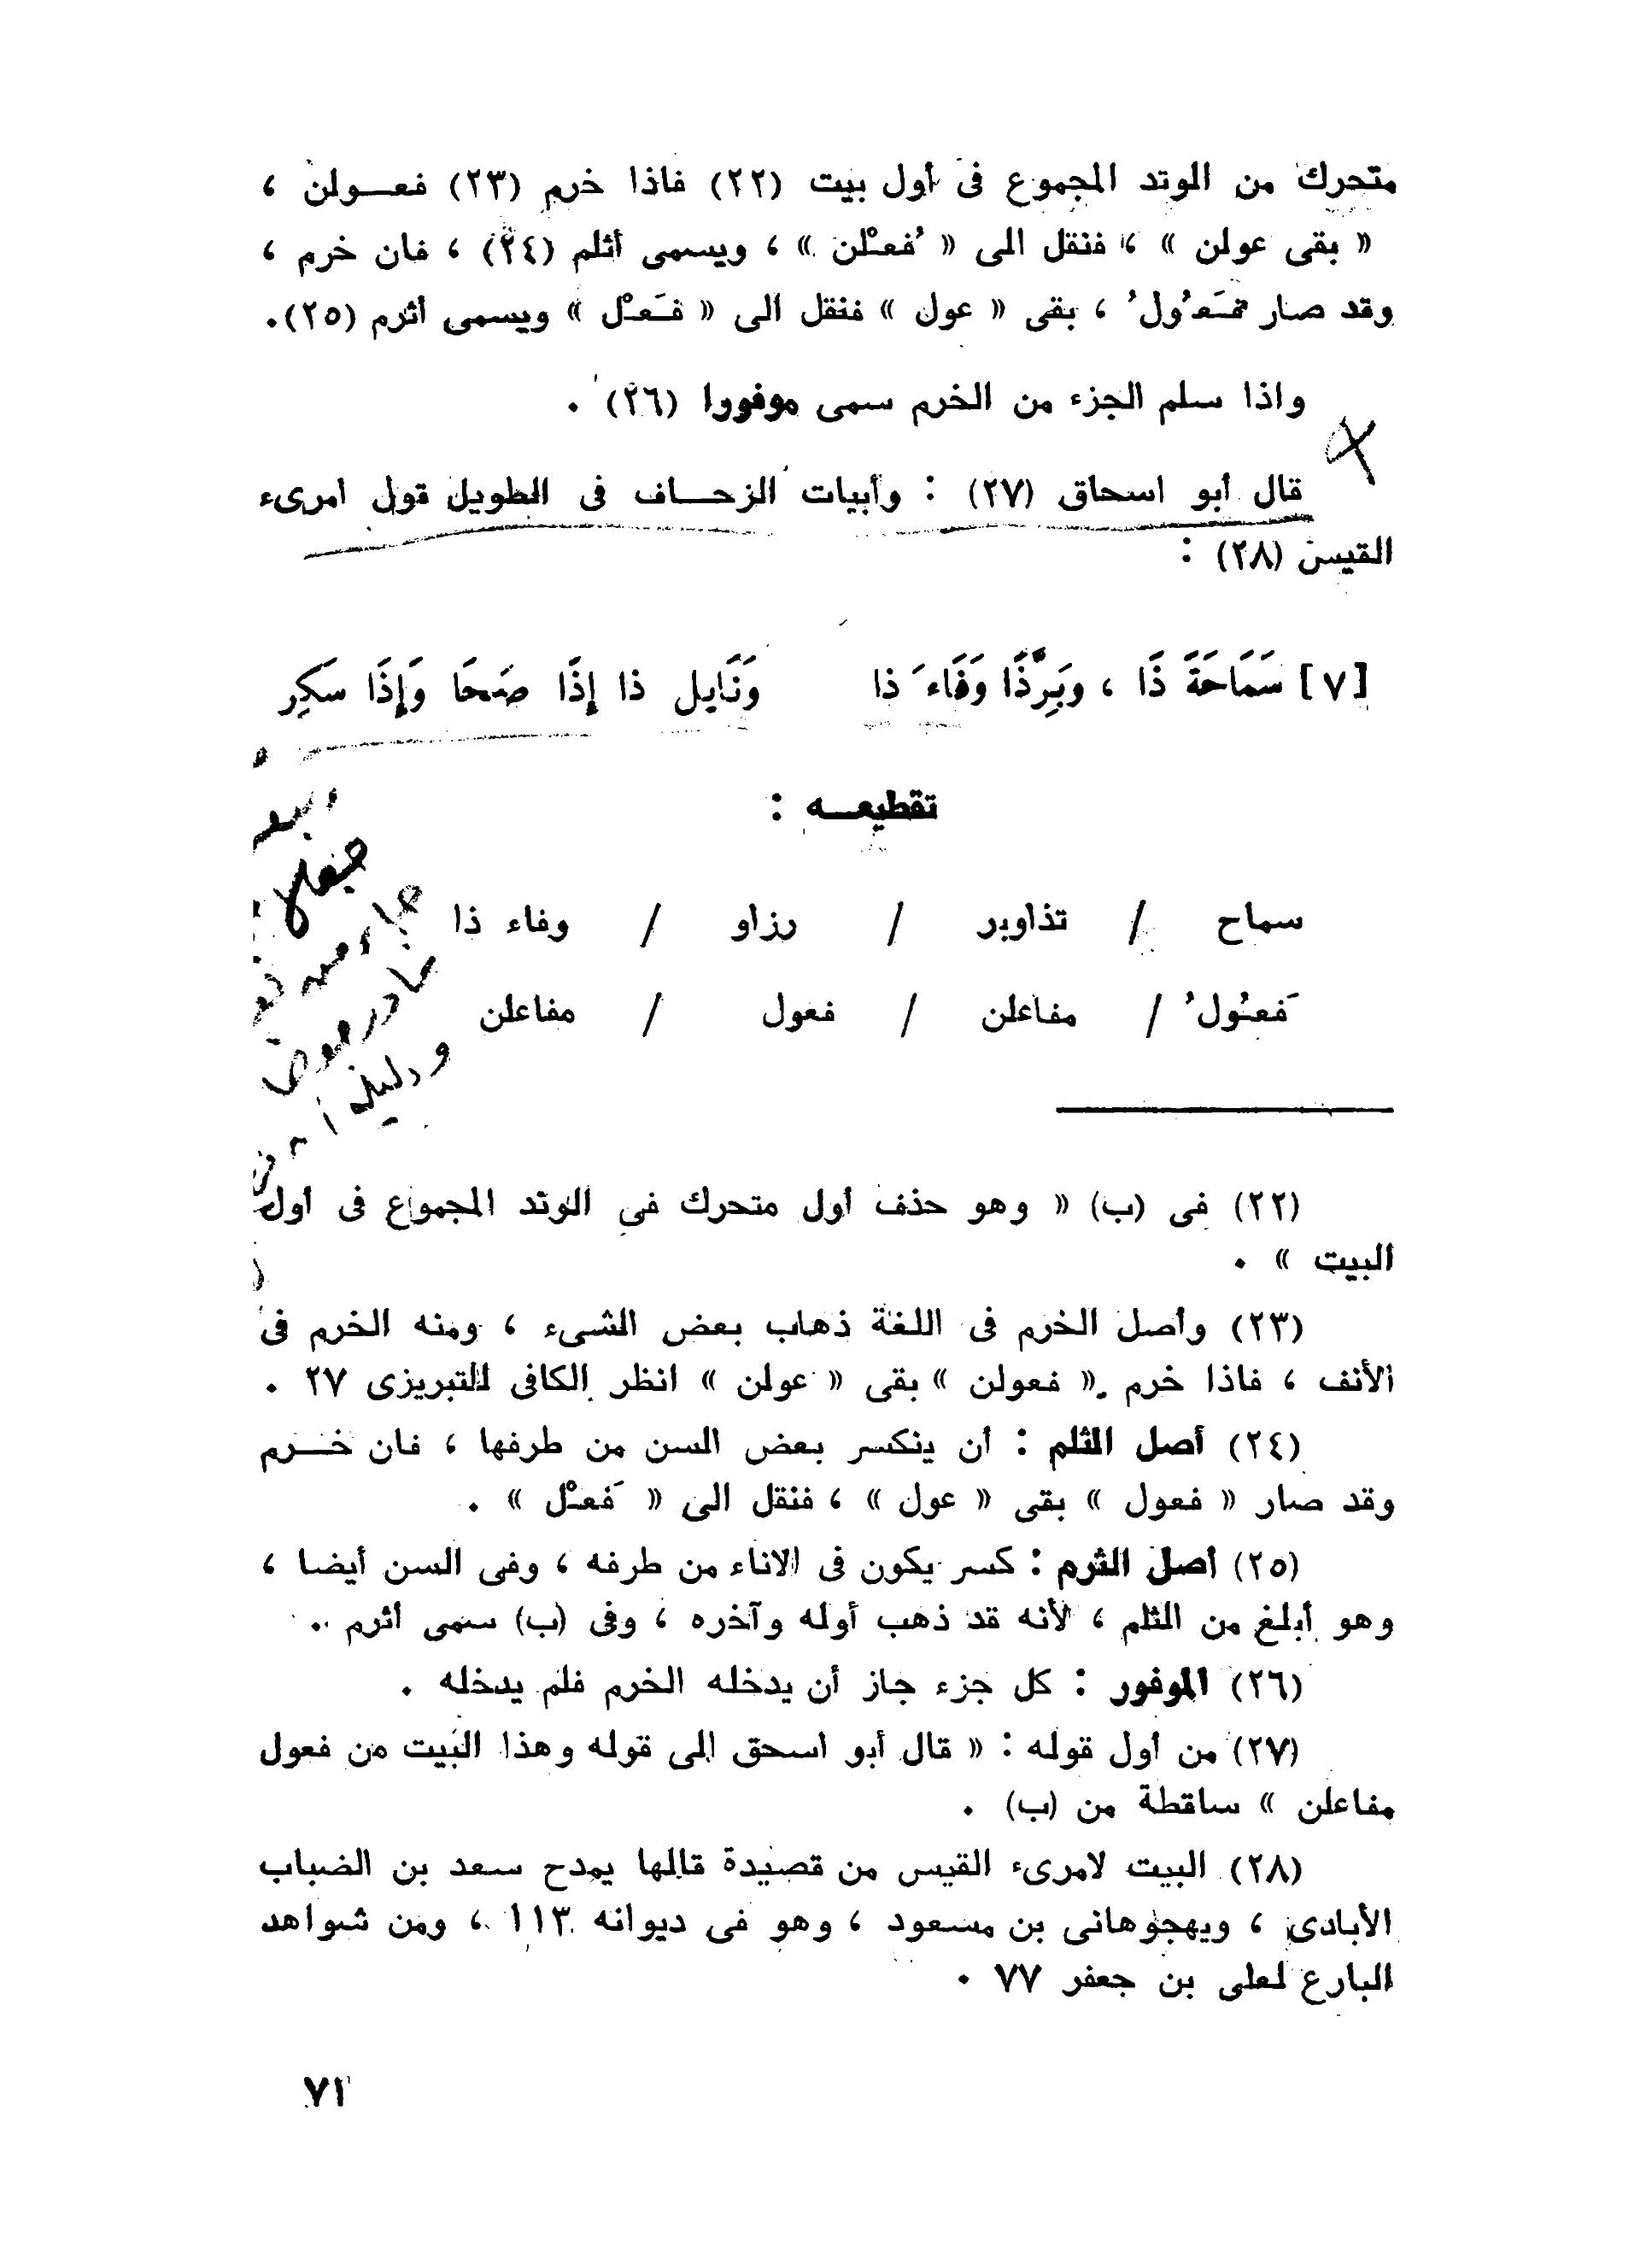 متحرك من الوتد المجموع فى أول بيت (٢٢) فاذا خرم (٢٣) فعـولن ،
« بقى عولن » ، فنقل الى « فُعـْلن » ، ويسمى أثلم (٢٤) ، فان خرم ،
وقد صار فَعـُولُ ، بقى « عول » فنقل الى « فَعـْل » ويسمى أثرم (٢٥).
واذا سلم الجزء من الخرم سمى موفورا (٢٦) .
قال أبو اسحاق (٢٧) : وأبيات الزحـاف فى الطويل قول امرىء
القيس (٢٨) :
[٧] سَمَاحَةَ ذَا ، وبَرِّذَا وَفَاءَ ذا وَنَايل ذا إذَا صَحَا وَإِذَا سَكِر
تقطيعـه :
سماح / تذاوبر / رزاو / وفاء ذا
فَعـُولُ / مفاعلن / فعول / مفاعلن
(٢٢) فى (ب) « وهو حذف أول متحرك فى الوتد المجموع فى اول
البيت » .
(٢٣) وأصل الخرم فى اللغة ذهاب بعض الشىء ، ومنه الخرم فى
الأنف ، فاذا خرم « فعولن » بقى « عولن » انظر الكافى للتبريزى ٢٧ .
(٢٤) أصل الثلم : أن ينكسر بعض السن من طرفها ، فان خـرم
وقد صار « فعول » بقى « عول » ، فنقل الى « فَعـْل » .
(٢٥) أصل الثرم : كسر يكون فى الاناء من طرفه ، وفى السن أيضا ،
وهو أبلغ من الثلم ، لأنه قد ذهب أوله وآخره ، وفى (ب) سمى أثرم .
(٢٦) الموفور : كل جزء جاز أن يدخله الخرم فلم يدخله .
(٢٧) من أول قوله : « قال أبو اسحق الى قوله وهذا البيت من فعول
مفاعلن » ساقطة من (ب) .
(٢٨) البيت لامرىء القيس من قصيدة قالها يمدح سعد بن الضباب
الأبادى ، ويهجوهانى بن مسعود ، وهو فى ديوانه ١١٣ ، ومن شواهد
البارع لعلى بن جعفر ٧٧ .
٧١